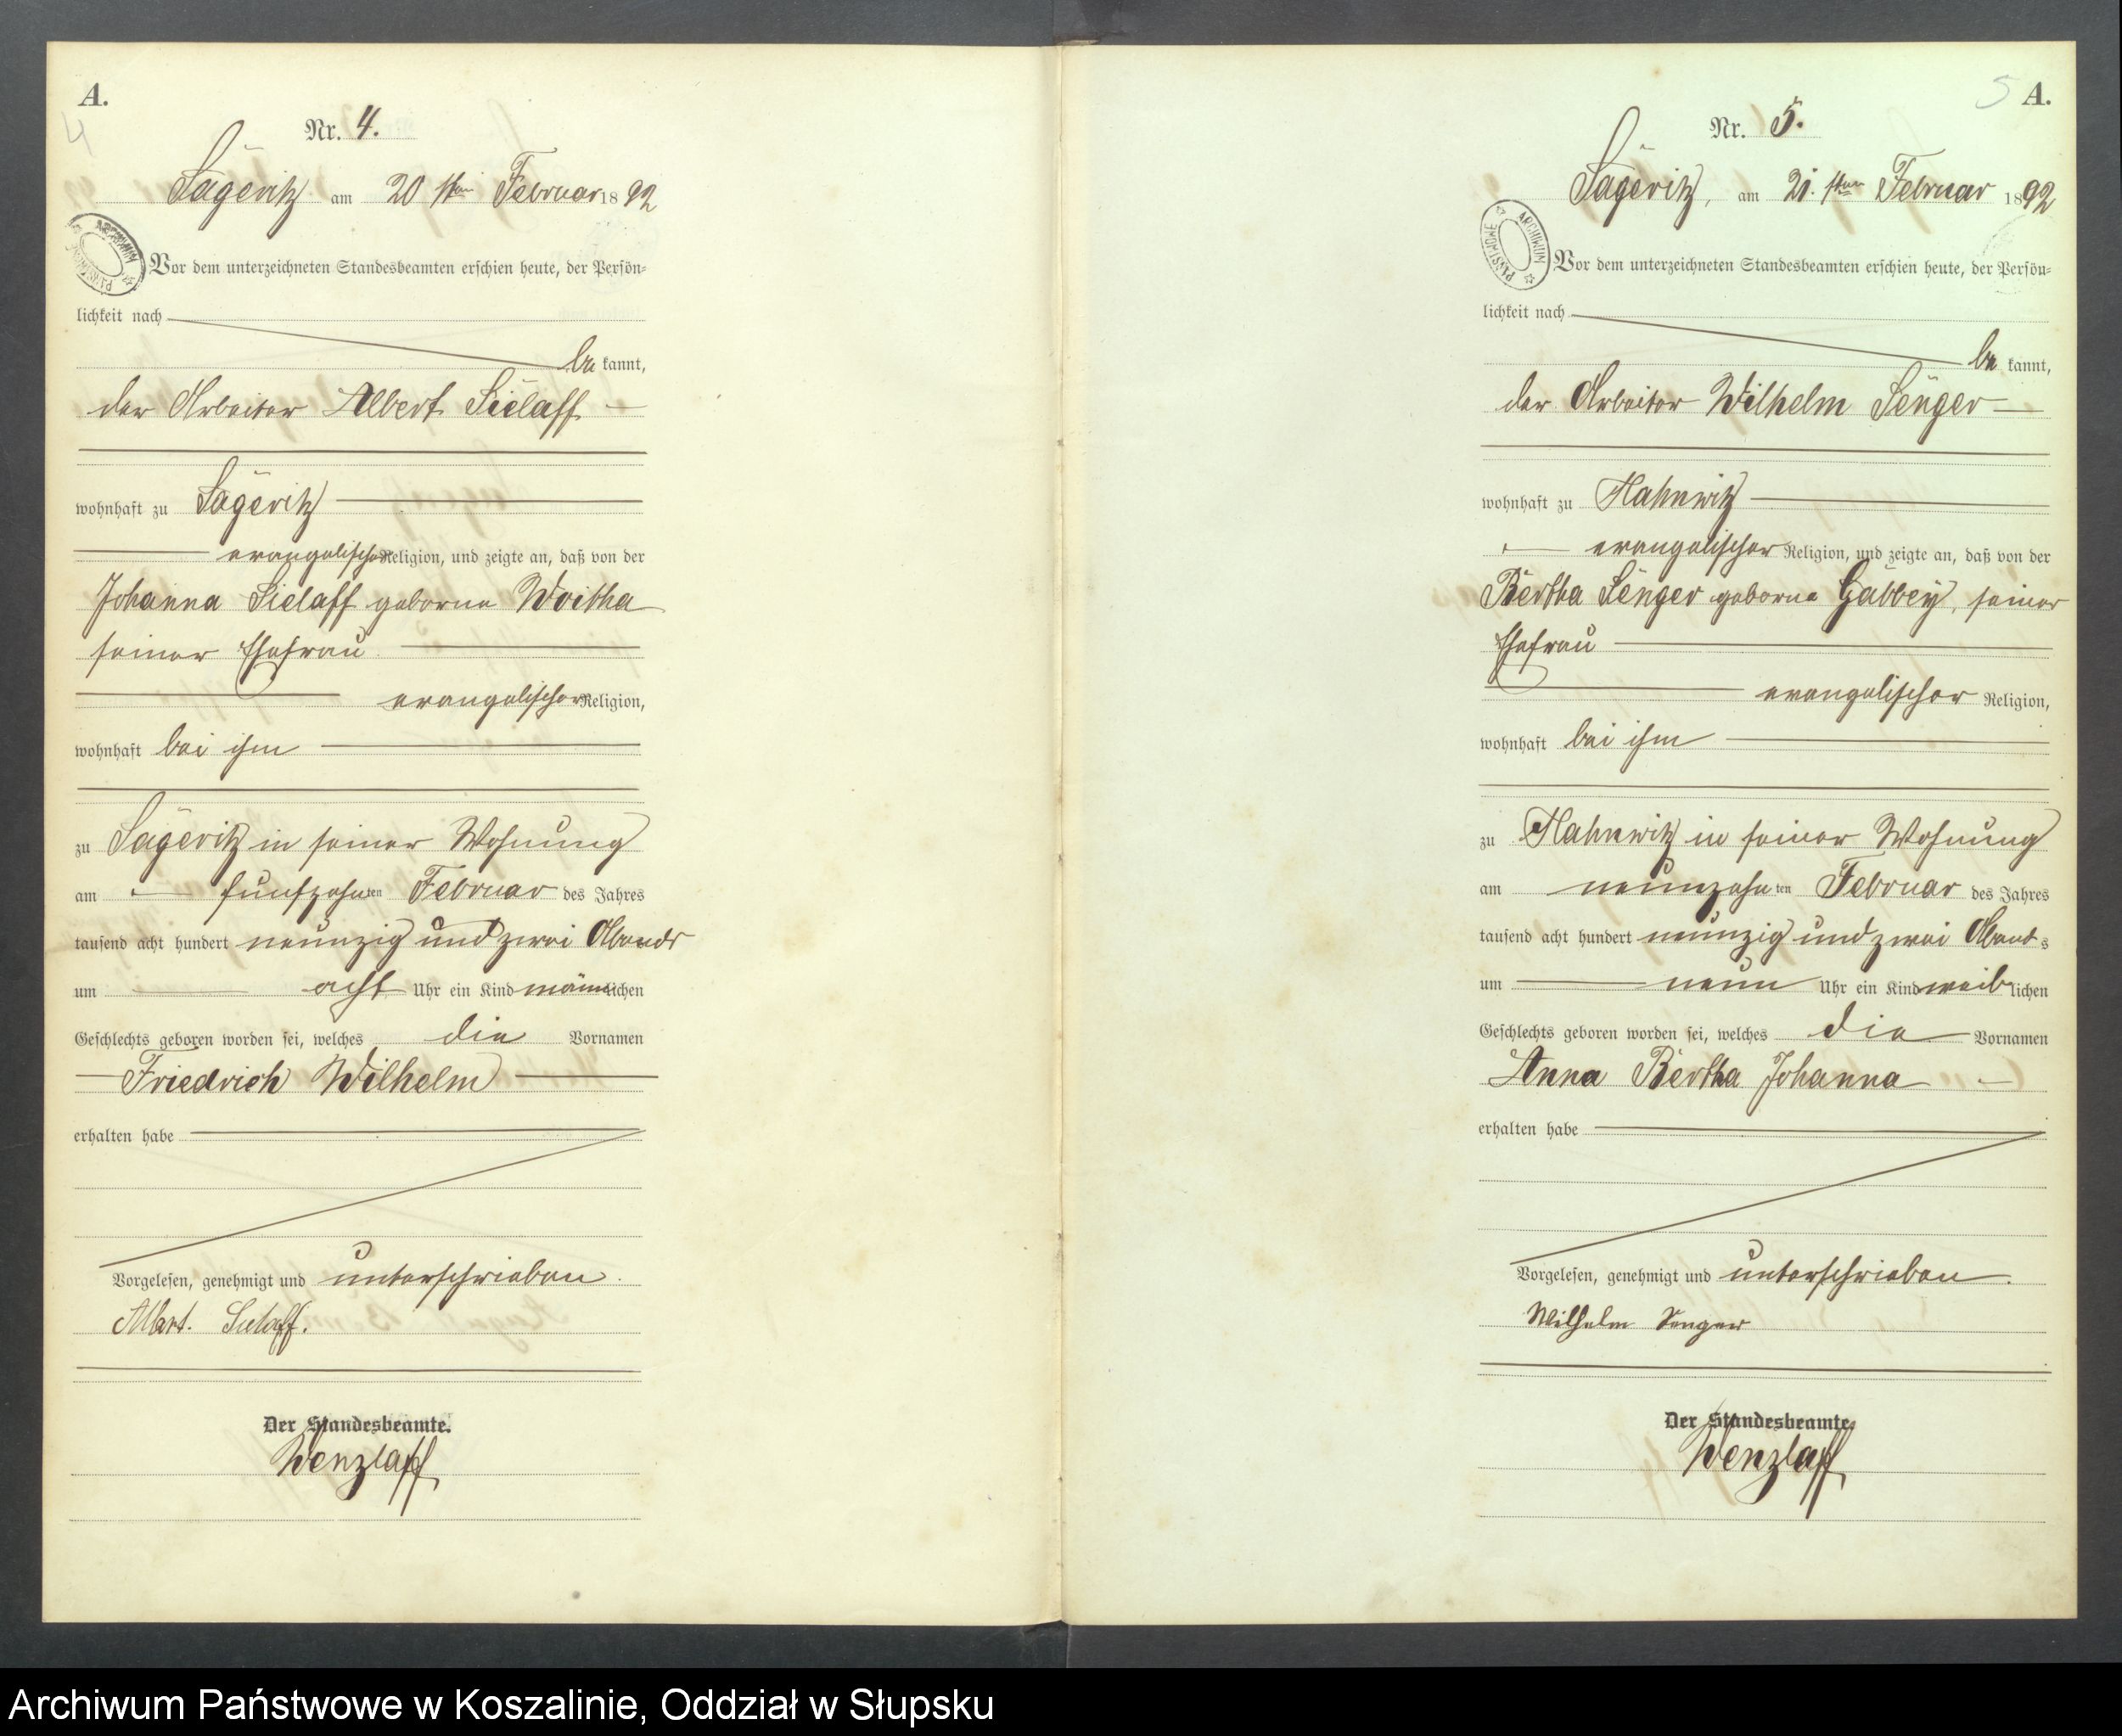 A.
4
Nr. 4.
Sageritz am 20 sten Februar 1892
ARCHIWUM PAŃSTWOWE
Vor dem unterzeichneten Standesbeamten erschien heute, der Persön-
lichkeit nach
be kannt,
der Arbeiter Albert Sielaff
wohnhaft zu Sageritz
evangelischer Religion, und zeigte an, daß von der
Johanna Sielaff geborne Woitha
seiner Ehefrau
evangelischer Religion,
wohnhaft bei ihm
zu Sageritz in seiner Wohnung
am fünfzehnten Februar des Jahres
tausend acht hundert neunzig und zwei Abends
um acht Uhr ein Kind männlichen
Geschlechts geboren worden sei, welches die Vornamen
Friedrich Wilhelm
erhalten habe
Vorgelesen, genehmigt und unterschrieben.
Albert. Sielaff.
Der Standesbeamte.
Wenzlaff
5 A.
Nr. 5.
Sageritz, am 21. sten Februar 1892
ARCHIWUM PAŃSTWOWE
Vor dem unterzeichneten Standesbeamten erschien heute, der Persön-
lichkeit nach
be kannt,
der Arbeiter Wilhelm Senger
wohnhaft zu Hahnwitz
evangelischer Religion, und zeigte an, daß von der
Bertha Senger geborne Gabbey, seiner
Ehefrau
evangelischer Religion,
wohnhaft bei ihm
zu Hahnwitz in seiner Wohnung
am neunzehnten Februar des Jahres
tausend acht hundert neunzig und zwei Abends
um neun Uhr ein Kind weiblichen
Geschlechts geboren worden sei, welches die Vornamen
Anna Bertha Johanna
erhalten habe
Vorgelesen, genehmigt und unterschrieben.
Wilhelm Senger
Der Standesbeamte.
Wenzlaff
Archiwum Państwowe w Koszalinie, Oddział w Słupsku